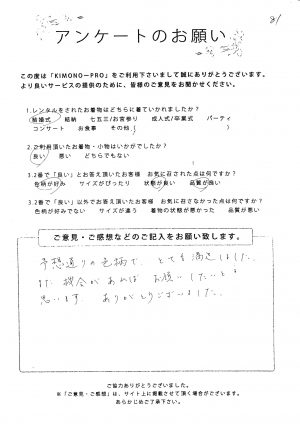 81
アンケートのお願い
この度は「KIMONO－PRO」をご利用下さいまして誠にありがとうございます。
より良いサービスの提供のために、皆様のご意見をお聞かせください。
1.レンタルをされたお着物はどちらに着ていかれましたか？
結婚式　結納　七五三/お宮参り　成人式/卒業式　パーティ
コンサート　お食事　その他（　　　）
2.ご利用頂いたお着物・小物はいかがでしたか？
良い　悪い　どちらでもない
3.2番で「良い」とお答え頂いたお客様　お気に召された点は何ですか？
色柄が好み　サイズがぴったり　状態が良い　品質が良い
3.2番で「良い」以外でお答え頂いたお客様　お気に召さなかった点は何ですか？
色柄が好みでない　サイズが違う　着物の状態が悪かった　品質が悪い
ご意見・ご感想などのご記入をお願い致します。
予想通りの色柄で、とても満足しました。
また機会があればお願いしたいと
思います　ありがとうございました。
ご協力ありがとうございました。
※「ご意見・ご感想」は、サイト上に掲載させて頂く場合がございます。
あらかじめご了承下さい。